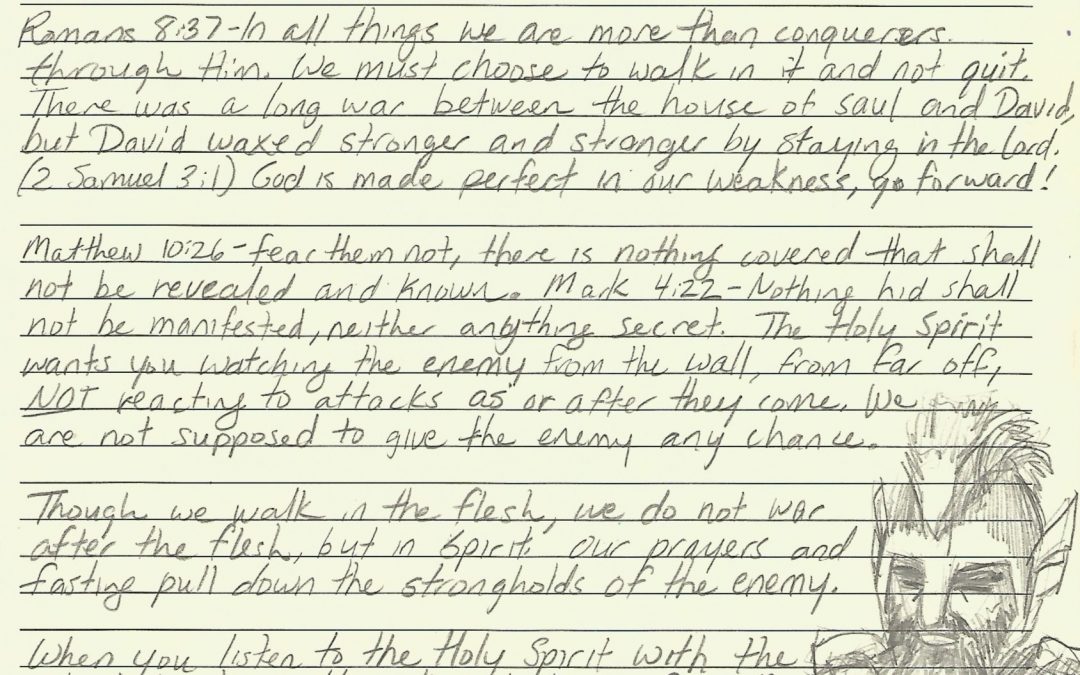 Romans 8:37-In all things we are more than conquerers
through Him. We must choose to walk in it and not quit.
There was a long war between the house of saul and David,
but David waxed stronger and stronger by staying in the Lord.
(2 Samuel 3:1) God is made perfect in our weakness, go forward!
Matthew 10:26-fear them not, there is nothing covered that shall
not be revealed and known. Mark 4:22-Nothing hid shall
not be manifested, neither anything secret. The Holy Spirit
wants you watching the enemy from the wall, from far off,
NOT reacting to attacks as or after they come. We
are not supposed to give the enemy any chance.
Though we walk in the flesh, we do not war
after the flesh, but in Spirit. Our prayers and
fasting pull down the strongholds of the enemy.
When you listen to the Holy Spirit with the